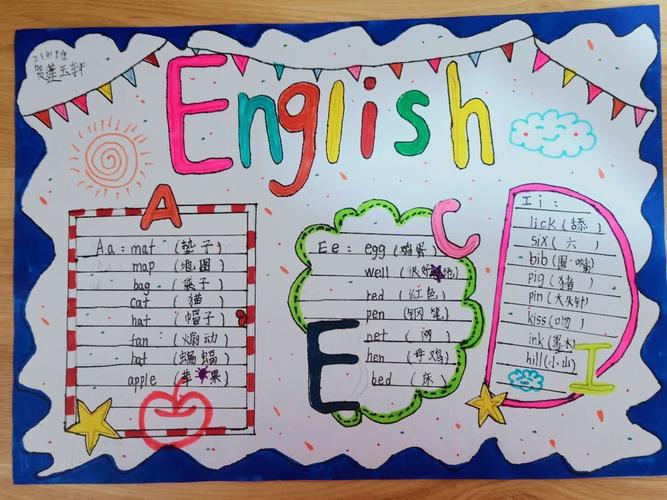 English
A
Aa: mat (垫子)
map (地图)
bag (袋子)
cat (猫)
hat (帽子)
fan (煽动)
bat (蝙蝠)
apple (苹果)
C
Ee: egg (鸡蛋)
well (很好地)
red (红色)
pen (钢笔)
net (网)
hen (母鸡)
bed (床)
E
D
Ii:
lick (舔)
six (六)
bib (围嘴)
pig (猪)
pin (大头针)
kiss (吻)
ink (墨水)
hill (小山)
I